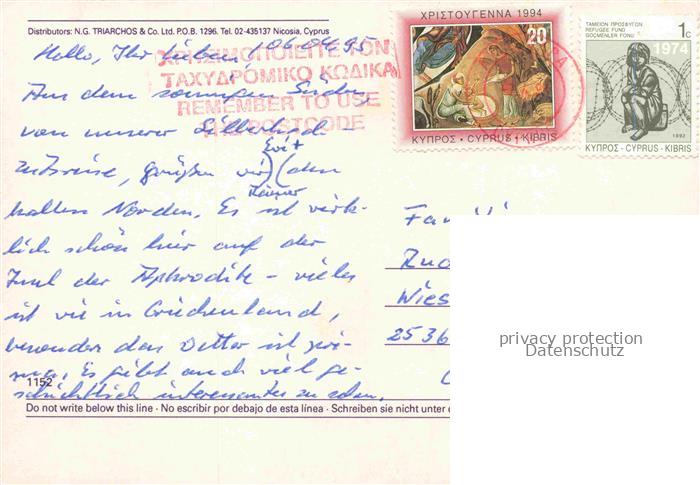 Distributors: N.G. TRIARCHOS & Co. Ltd. P.O.B. 1296. Tel. 02-435137 Nicosia, Cyprus
ΧΡΙΣΤΟΥΓΕΝΝΑ 1994
20
ΚΥΠΡΟΣ · CYPRUS · KIBRIS
ΤΑΜΕΙΟΝ ΠΡΟΣΦΥΓΩΝ
REFUGEE FUND
GOCMENLER FONU
1c
1974
1992
ΚΥΠΡΟΣ - CYPRUS - KIBRIS
ΧΡΗΣΙΜΟΠΟΙΕΙΤΕ ΤΟΝ
ΤΑΧΥΔΡΟΜΙΚΟ ΚΩΔΙΚΑ
REMEMBER TO USE
THE POSTCODE
Hallo, Ihr Lieben, 06.04.95
Aus dem sonnigen Süden
von unserer
grüßen wir (Evi + Rainer) den
kalten Norden. Es ist wirk-
lich schön hier auf der
Insel der Aphrodite - vieles
ist wie in Griechenland,
besonders das
Es gibt auch viel ge-
schichtlich interessantes zu sehen.
Famili
Rud
Wies
2536
1152
Do not write below this line · No escribir por debajo de esta línea · Schreiben sie nicht unter
privacy protection
Datenschutz